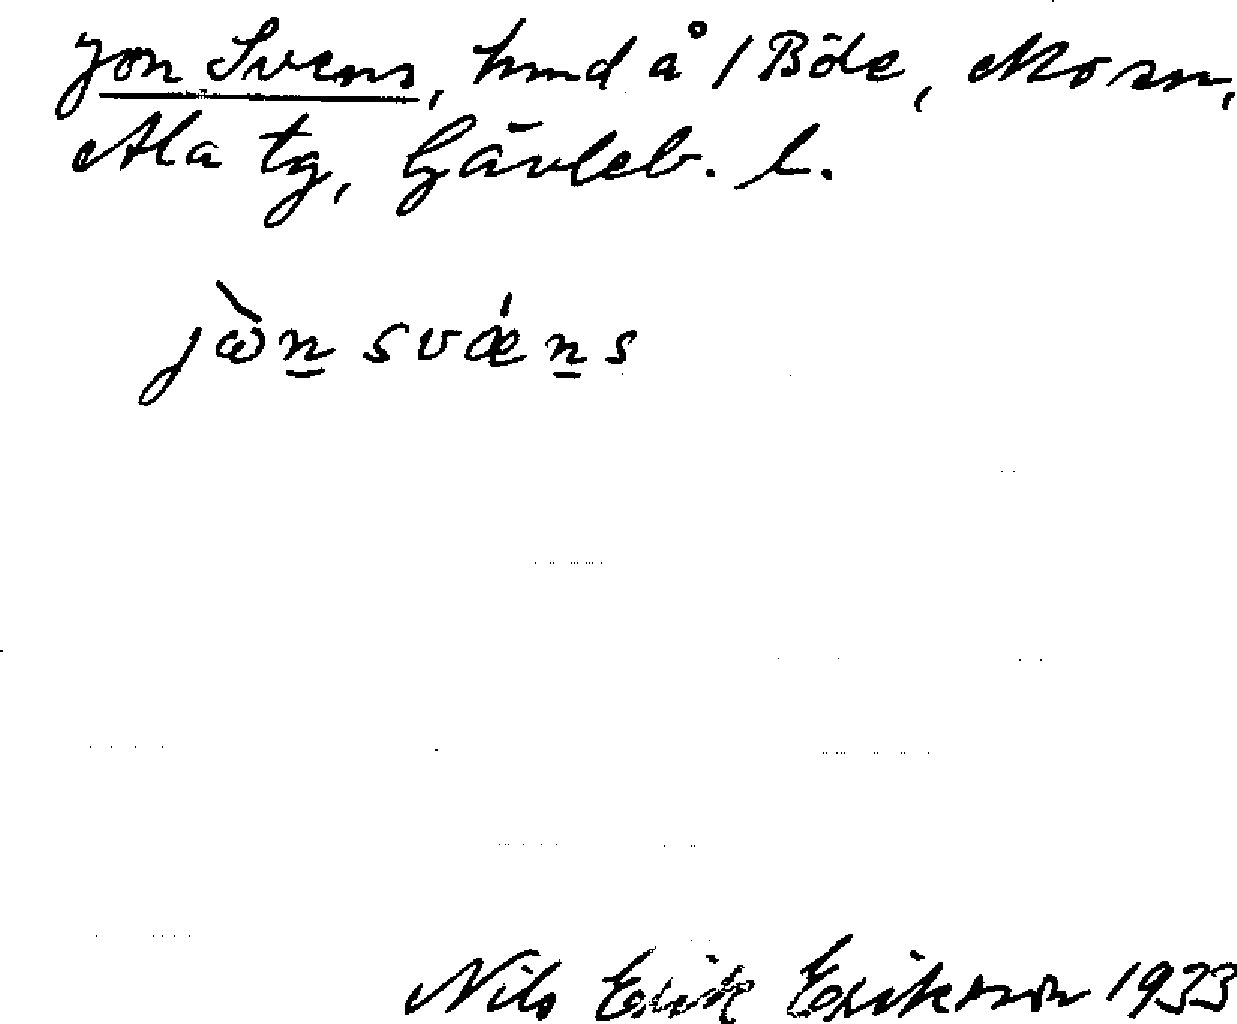 Jon Svens, hmd å /Böle, Mo sn,
Ala tg, Gävleb. l.
jὼn svǽns
Nils Erik Erikson 1933